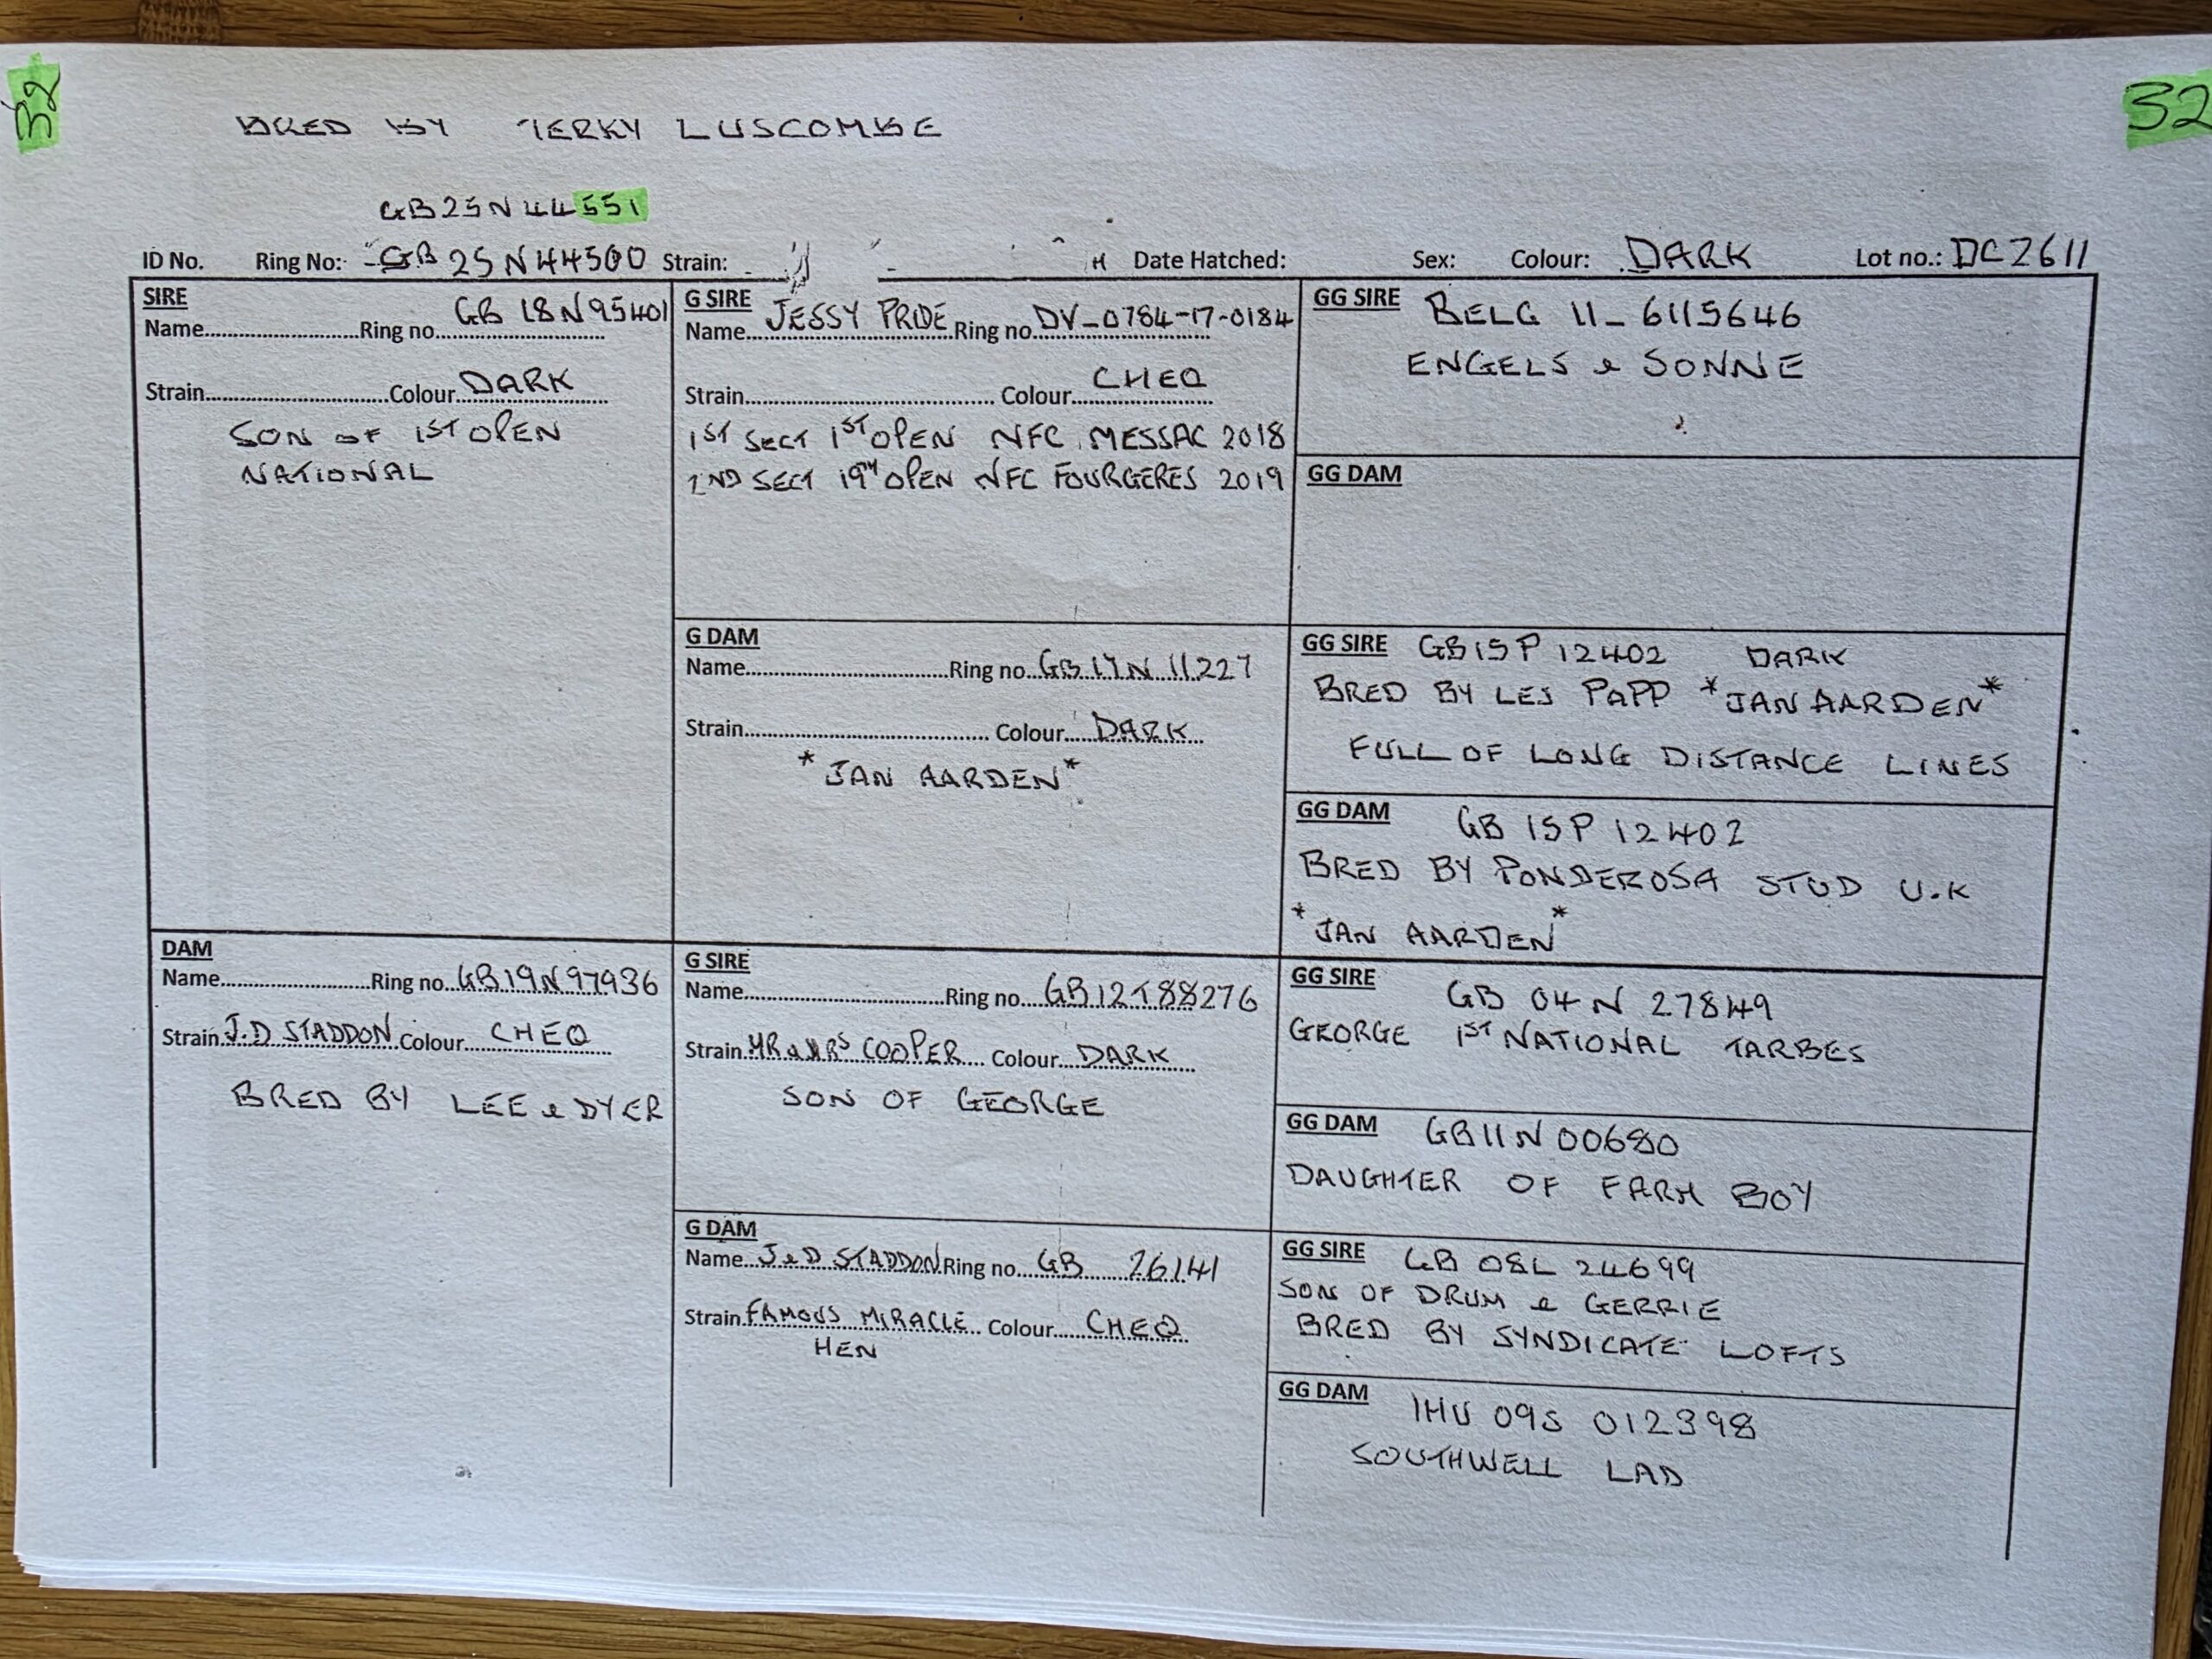 32
32
BRED BY TERRY LUSCOMBE
GB25N44551
ID No. Ring No: GB 25N44500 Strain: Date Hatched: Sex: Colour: DARK Lot no.: DC2611
SIRE
Name Ring no GB 18N95401
Strain Colour DARK
SON OF 1ST OPEN
NATIONAL
G SIRE
Name JESSY PRIDE Ring no DV-0784-17-0184
Strain Colour CHEQ
1ST SECT 1ST OPEN NFC MESSAC 2018
2ND SECT 19TH OPEN NFC FOURGERES 2019
GG SIRE BELG 11-6115646
ENGELS & SONNE
GG DAM
G DAM
Name Ring no GB17N11227
Strain Colour DARK
*JAN AARDEN*
GG SIRE GB15P12402 DARK
BRED BY LES PAPP *JAN AARDEN*
FULL OF LONG DISTANCE LINES
GG DAM GB 15P12402
BRED BY PONDEROSA STUD U.K
*JAN AARDEN*
DAM
Name Ring no GB19N97936
Strain J.D STADDON Colour CHEQ
BRED BY LEE & DYER
G SIRE
Name Ring no GB12T88276
Strain MR & MRS COOPER Colour DARK
SON OF GEORGE
GG SIRE GB 04N 27849
GEORGE 1ST NATIONAL TARBES
GG DAM GB11N00680
DAUGHTER OF FARM BOY
G DAM
Name J&D STADDON Ring no GB 26141
Strain FAMOUS MIRACLE Colour CHEQ
HEN
GG SIRE GB 08L 24699
SON OF DRUM & GERRIE
BRED BY SYNDICATE LOFTS
GG DAM IHU 09S 012398
SOUTHWELL LAD